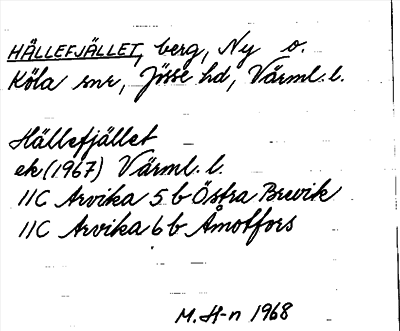 HÄLLEFJÄLLET, berg, Ny o.
Köla snr, Jösse hd, Värml. l.
Hällefjället
ek (1967) Värml. l.
11C Arvika 5 b Östra Brevik
11C Arvika 6 b Åmotfors
M. H-n 1968